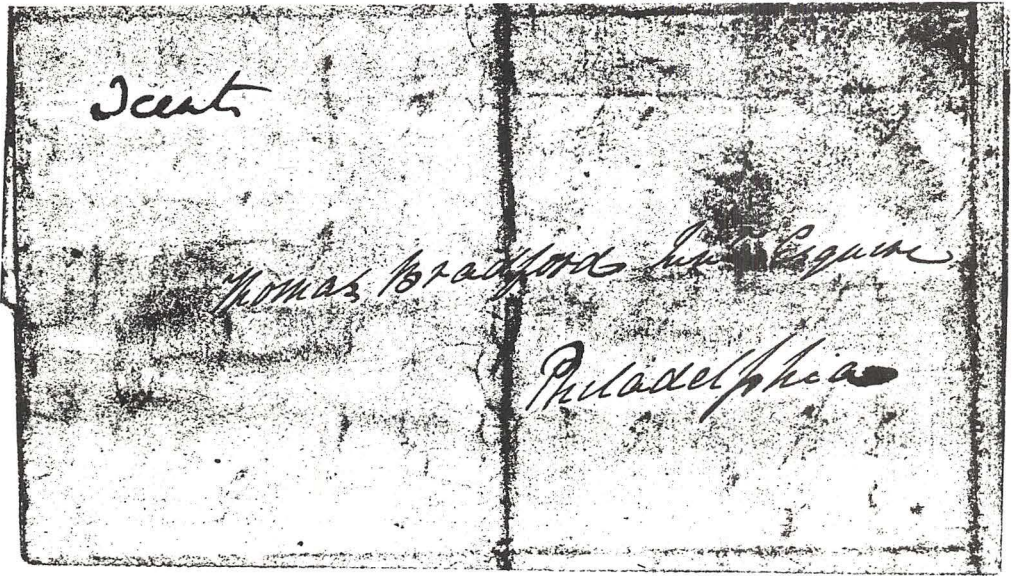 2 cents
Thomas Bradford Junr Esquire
Philadelphia